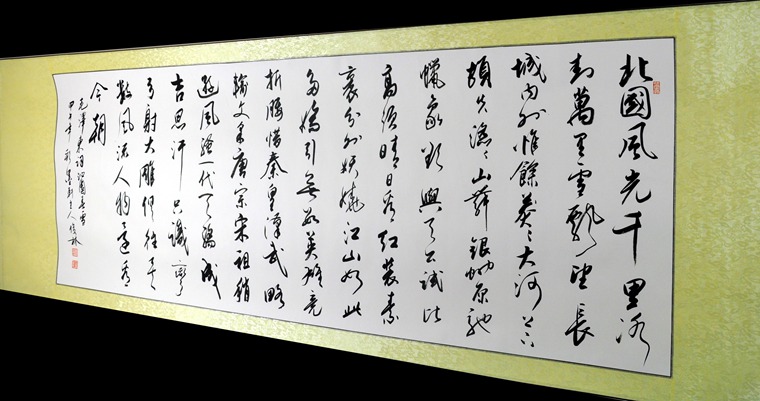 北國風光千里冰
封萬里雪飄望長
城内外惟餘莽〻大河上下
頓失滔〻山舞銀蛇原馳
蠟象欲與天公試比
高須晴日看紅裝素
裹分外妖嬈江山如此
多嬌引無數英雄竞
折腰惜秦皇漢武略
輸文采唐宗宋祖稍
遜風騷一代天驕成
吉思汗只識彎
弓射大雕俱往矣
數風流人物還看
今朝
毛澤東詞沁園春雪
甲午年秋